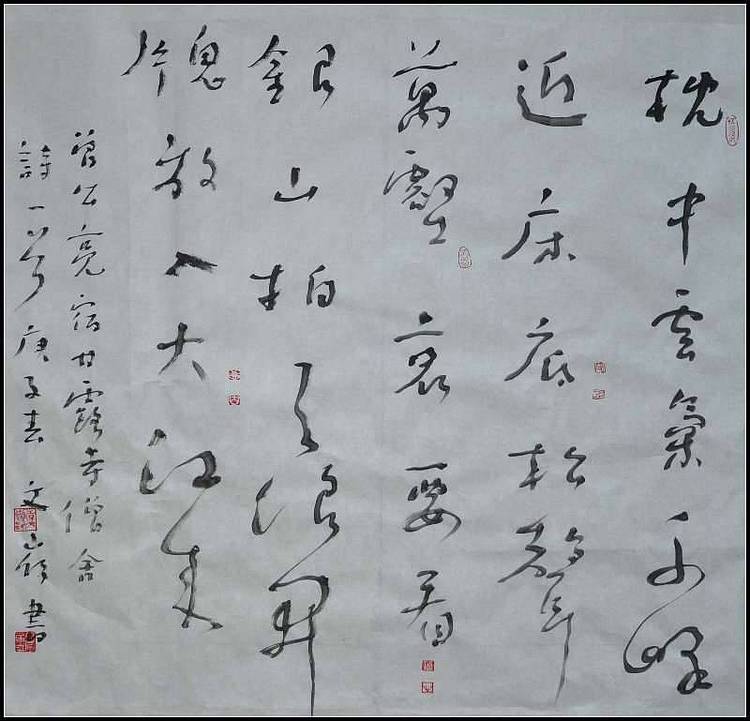 枕中雲氣千峰
近床底松聲
萬壑哀要看
銀山拍天浪開
牕放入大江來
曾公亮宿甘露寺僧舍
詩一首庚子春文山書